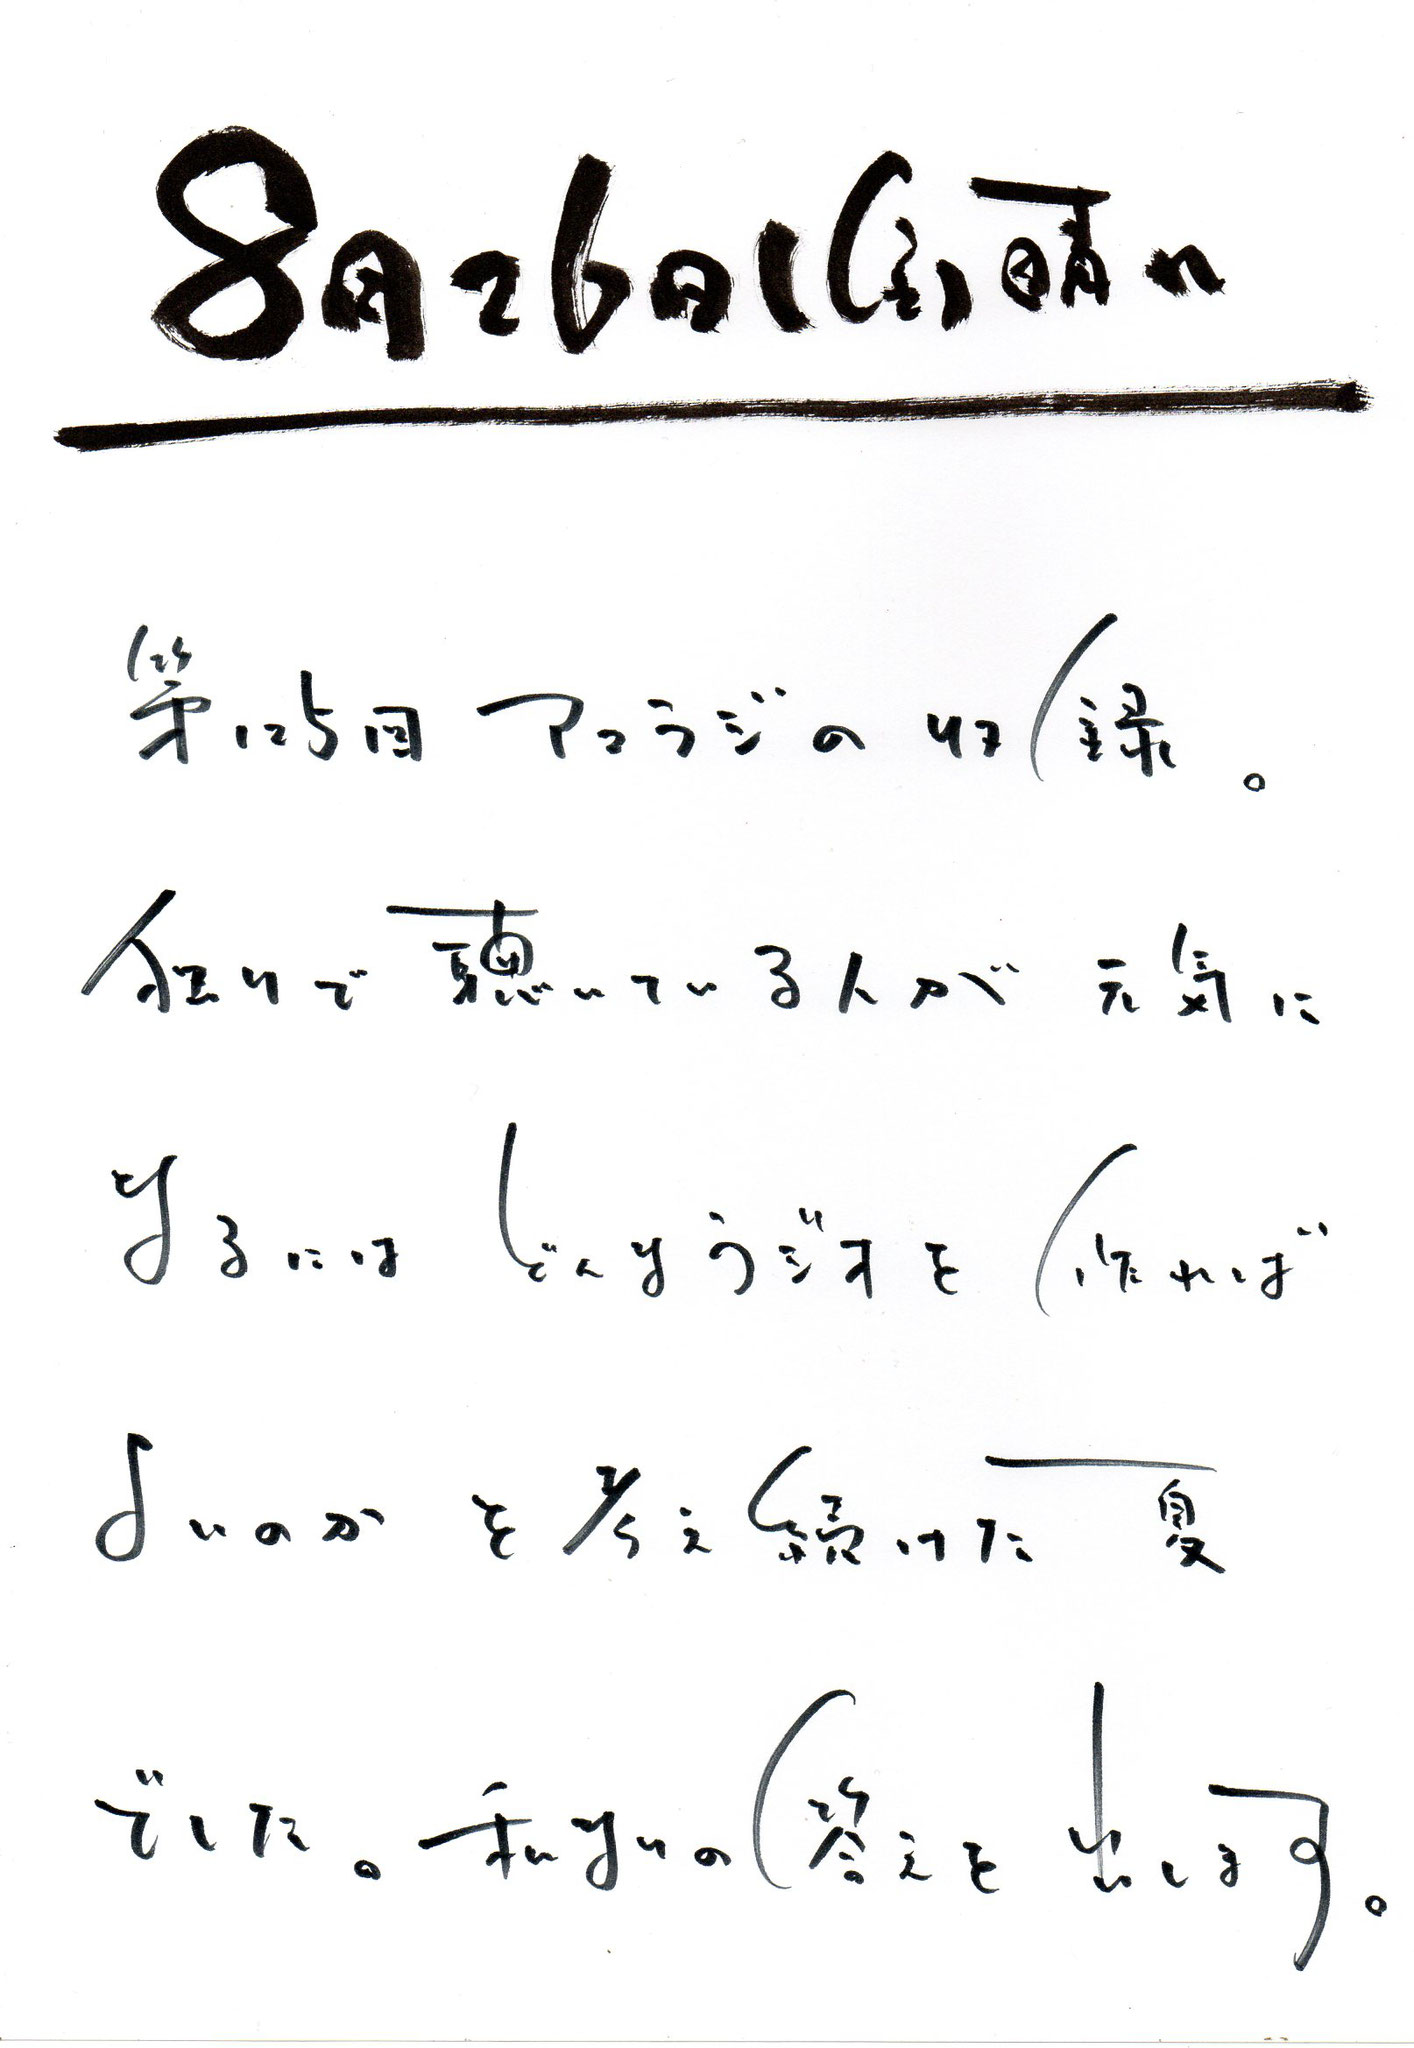 8月26日(金)晴れ
第125回 アコラジの収録。
独りで聴いている人が 元気に
なるには どんなラジオを 作れば
よいのか を考え続けた 夏
でした。私なりの答えを 出します。